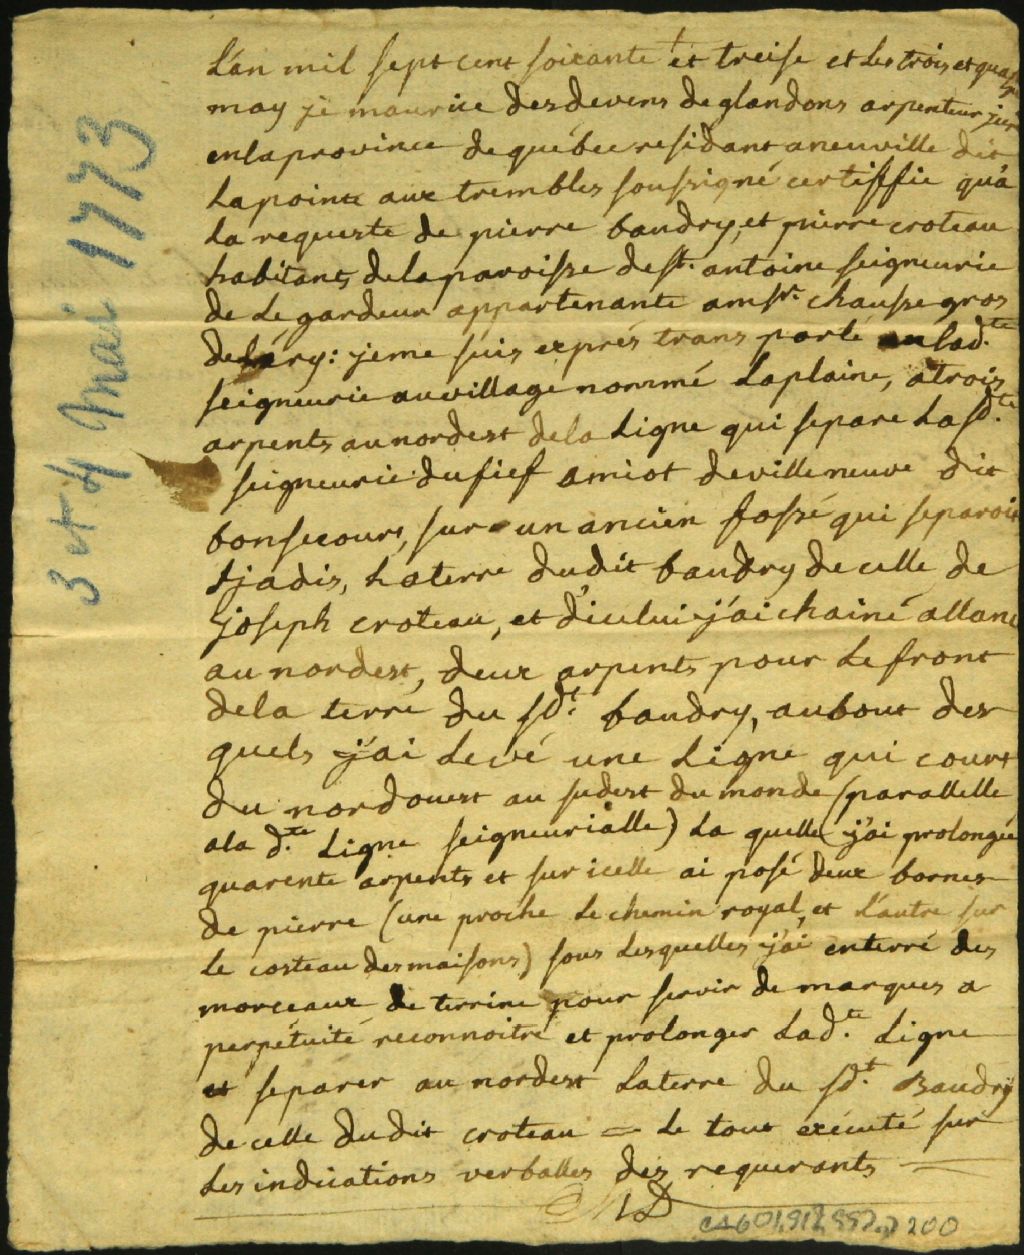 3 et 4 Mai 1773
L'an mil sept cent soixante et treise et les trois et quatre
may je maurice desdevens de glandons arpenteur juré
en la province de québec residant a neuville dit
La pointe aux trembles soussigné certiffie qu'a
La requeste de pierre baudry, et pierre croteau
habitants de la paroisse de st. antoine seigneurie
de Le gardeur appartenante a msr. chaussegros
deléry: je me suis exprés transporté en lad.te
seigneurie au village nommé Laplaine, a trois
arpents au nordest de la Ligne qui separe La sd.te
seigneurie du fief amiot de villeneuve dit
bonsecours, sur un ancien fossé qui separoit
jadis, La terre dudit baudry de celle de
joseph croteau, et d'icelui j'ai chainé allant
au nordest, deux arpents pour Le front
de la terre du sd.t baudry, au bout des
quels j'ai Levé une Ligne qui court
du nordouest au sudest du monde (parallelle
a la d.te Ligne seigneurialle) La quelle j'ai prolongée
quarente arpents et sur icelle ai posé deux bornes
de pierre (une proche Le chemin royal, et L'autre sur
Le costeau des maisons) sous Lesquelles j'ai enterré des
morceaux de terrine pour servir de marques a
perpétuité reconnoitre et prolonger Lad.te Ligne
et separer au nordest La terre du sd.t Baudry
de celle dudit croteau = Le tout exécuté sur
Les indications verballes des requerants
MD
CA601,S17,SS7,D200